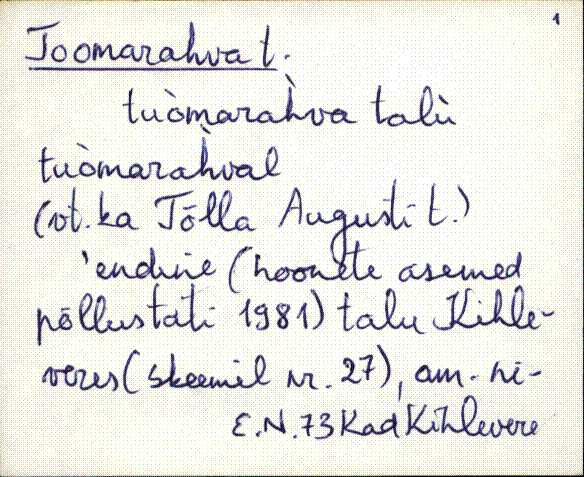 1
Toomarahva t.
tuòmarah̀va talù
tuòmarah̀val
(vt. ka Tõlla Augusti t.)
'endine (hoonete asemed
põllustati 1981) talu Kihle-
veres (skeemil nr. 27), am. ni-
E.N.73 Kad Kihlevere